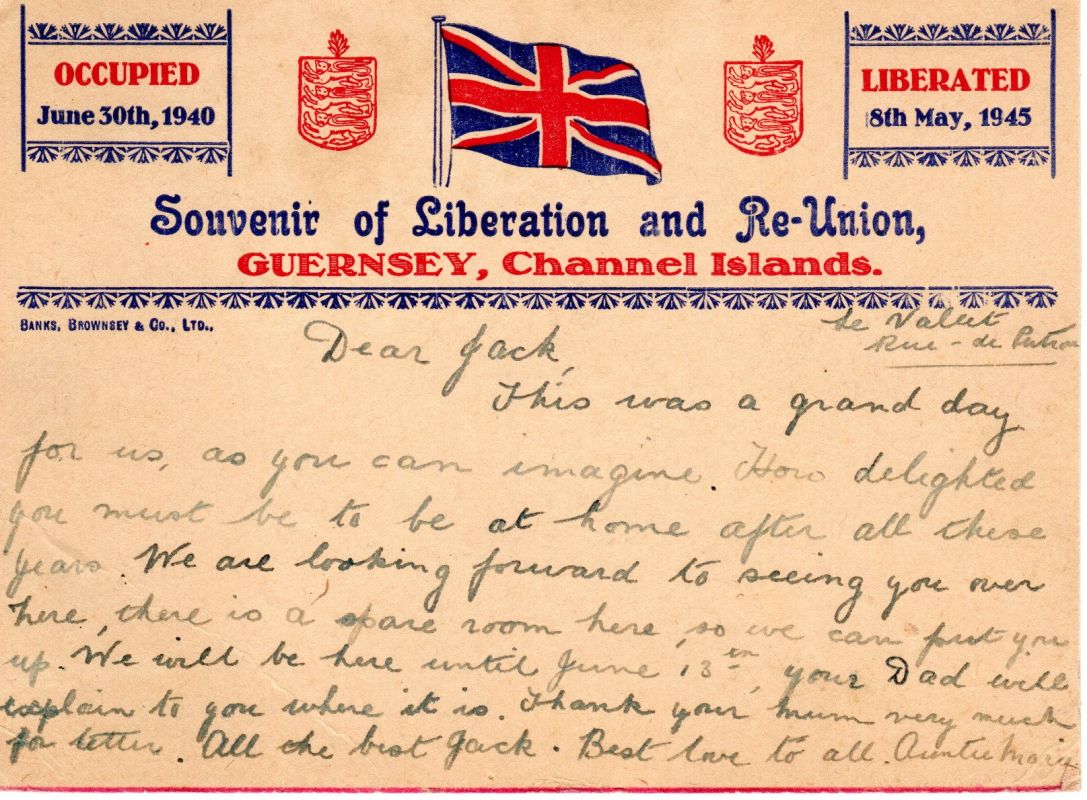 OCCUPIED
June 30th, 1940
LIBERATED
8th May, 1945
Souvenir of Liberation and Re-Union,
GUERNSEY, Channel Islands.
BANKS, BROWNSEY & CO., LTD.,
Le
Rue - de
Dear Jack,
This was a grand day
for us, as you can imagine. How delighted
you must be to be at home after all these
years. We are looking forward to seeing you over
here, there is a spare room here, so we can put you
up. We will be here until June 13th, your Dad will
explain to you where it is. Thank your mum very much
for letter. All the best Jack. Best love to all. Auntie